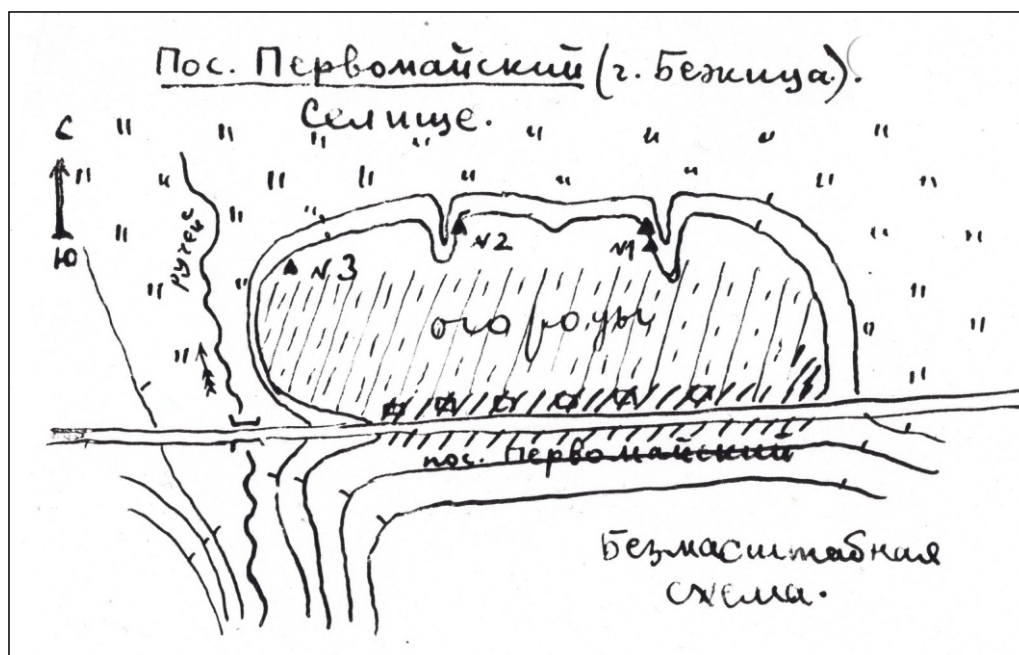 Пос. Первомайский (г. Бежица).
Селище.
С
Ю
ручей
№3
№2
№1
огороды
пос. Первомайский
Безмасштабная
схема.